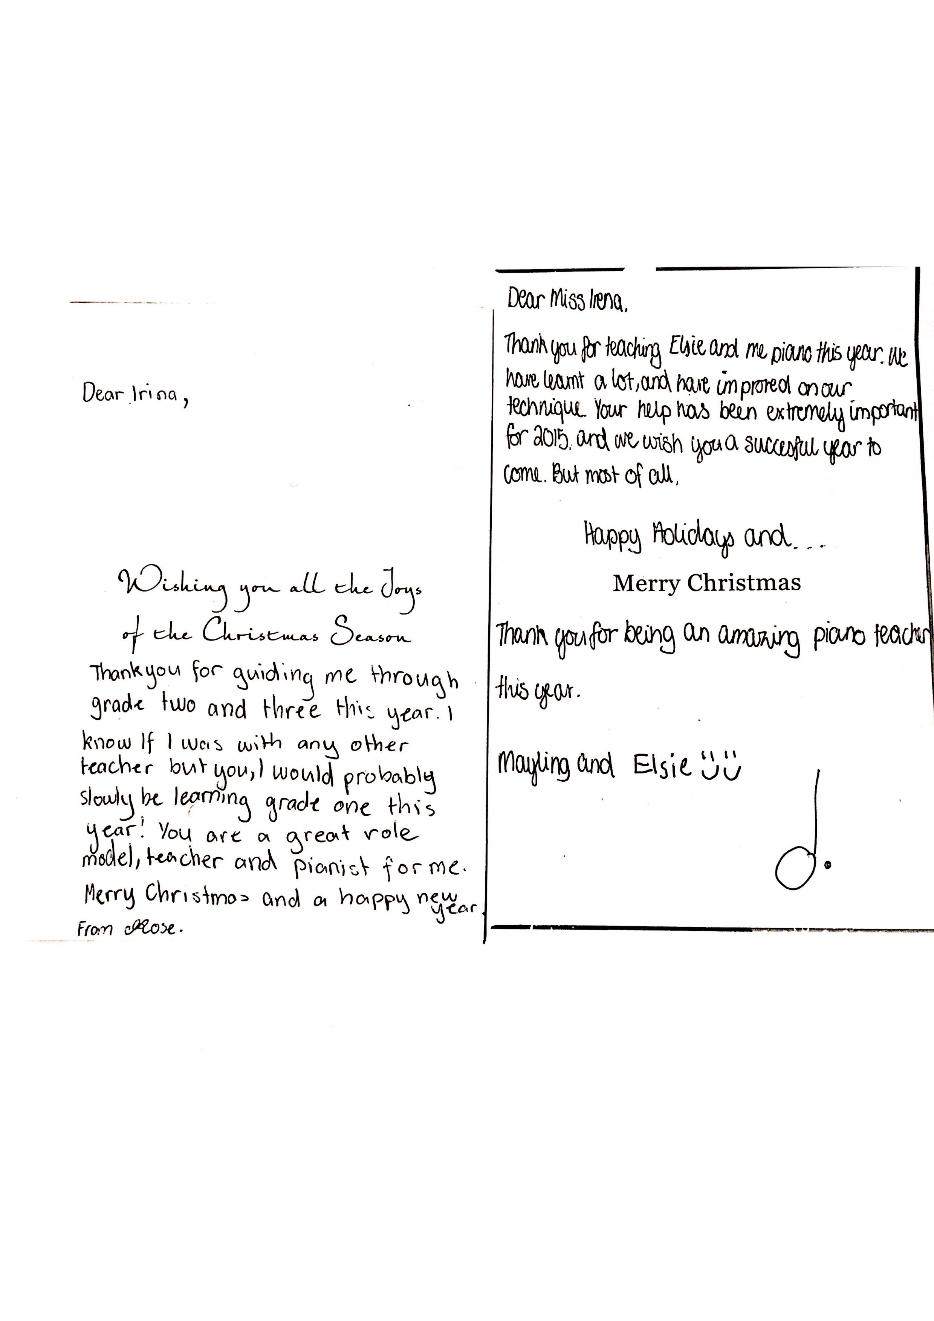 Dear Irina,
Wishing you all the Joys
of the Christmas Season
Thankyou for guiding me through
grade two and three this year. I
know If I was with any other
teacher but you, I would probably
slowly be learning grade one this
year! You are a great role
model, teacher and pianist for me.
Merry Christmas and a happy new
year
From Rose.
Dear Miss Irena,
Thank you for teaching Elsie and me piano this year. We
have learnt a lot, and have improved on our
technique. Your help has been extremely important
for 2015, and we wish you a succesful year to
come. But most of all,
Happy Holidays and...
Merry Christmas
Thank you for being an amazing piano teacher
this year.
Mayling and Elsie